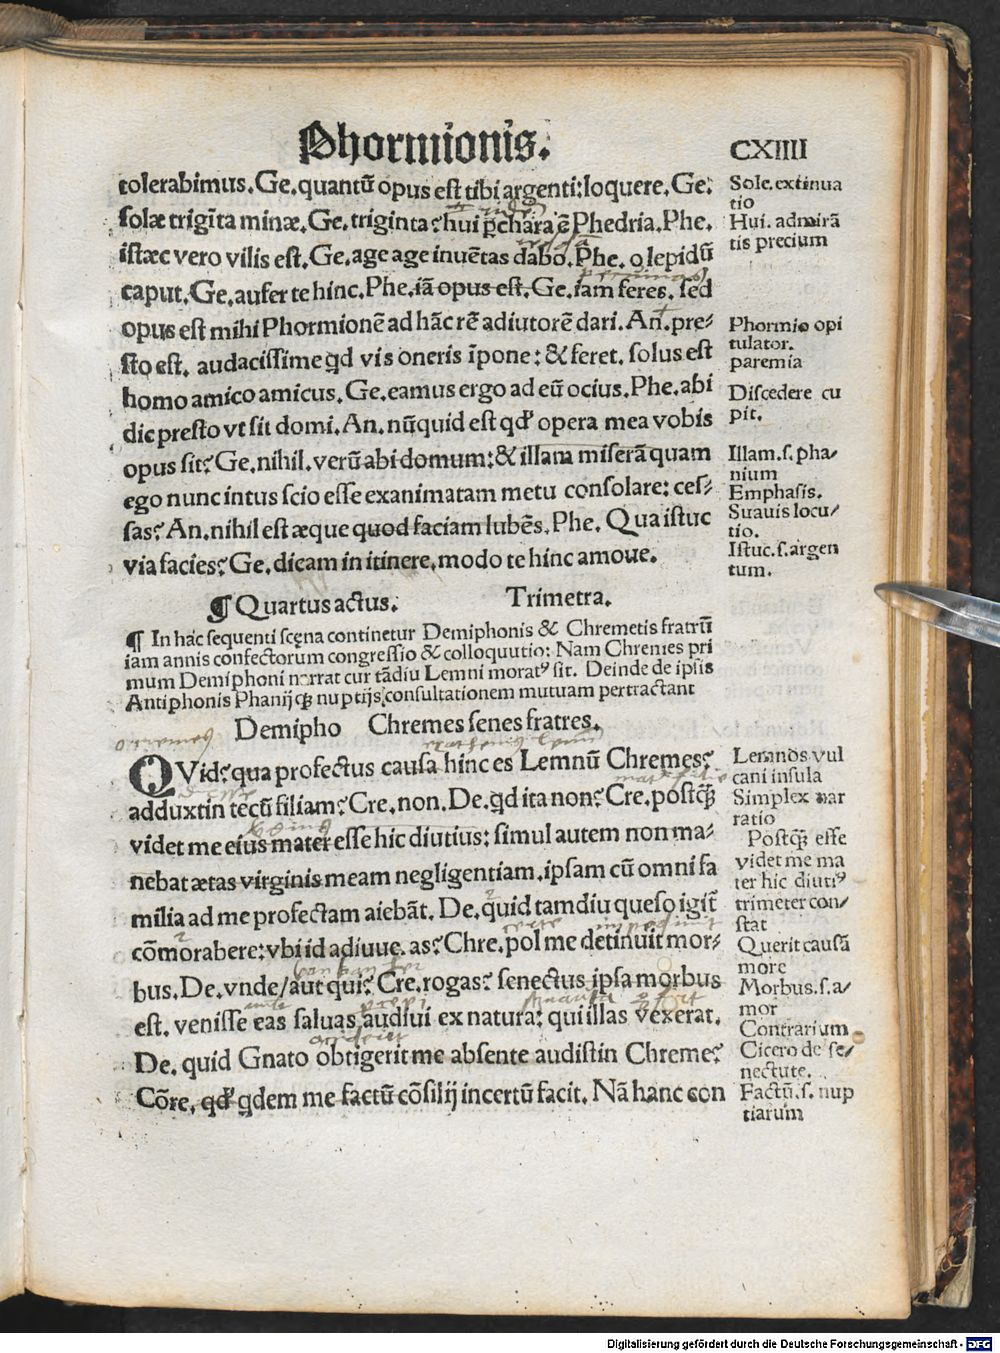 Phormionis.
CXIIII
tolerabimus. Ge. quantũ opus est tibi argenti: loquere. Ge.
solæ trigĩta minæ. Ge. triginta: hui p̃chara ẽ Phedria. Phe.
istæc vero vilis est. Ge. age age inuẽtas dabo. Phe. o lepidũ
caput. Ge. aufer te hinc. Phe. iã opus est. Ge. iam feres. sed
opus est mihi Phormionẽ ad hãc rẽ adiutorẽ dari. An. pre-
sto est. audacissime qd vis oneris ĩpone: & feret. solus est
homo amico amicus. Ge. eamus ergo ad eũ ocius. Phe. abi
dic presto vt sit domi. An. nũquid est qđ opera mea vobis
opus sit? Ge. nihil. verũ abi domum: & illam miserã quam
ego nunc intus scio esse exanimatam metu consolare: ces-
sas? An. nihil est æque quod faciam lubẽs. Phe. Qua istuc
via facies? Ge. dicam in itinere, modo te hinc amoue.
¶ Quartus actus. Trimetra.
¶ In hac sequenti scęna continetur Demiphonis & Chremetis fratrũ
iam annis confectorum congressio & colloquutio: Nam Chremes pri
mum Demiphoni narrat cur tãdiu Lemni moratꝰ sit. Deinde de ipsis
Antiphonis Phanijcꝗ nuptijs consultationem mutuam pertractant
Demipho Chremes senes fratres.
QVid? qua profectus causa hinc es Lemnũ Chremes?
adduxtin tecũ filiam? Cre. non. De. qd ita non? Cre. postꝗ̃
videt me eius mater esse hic diutius: simul autem non ma-
nebat ætas virginis meam negligentiam. ipsam cũ omni fa
milia ad me profectam aiebãt. De. quid tamdiu queso igit̃
cõmorabere: vbi id adiuue. as? Chre. pol me detinuit mor-
bus. De. vnde/ aut qui? Cre. rogas? senectus ipsa morbus
est. venisse eas saluas audiui ex natura: qui illas vexerat.
De. quid Gnato obtigerit me absente audistin Chreme?
Cõre. qđ qdem me factũ cõsilij incertũ facit. Nã hanc con
Sole. extinua
tio
Hui. admirã
tis precium
Phormio opi
tulator.
paremia
Discedere cu
pit.
Illam. s. pha-
nium
Emphasis.
Suauis locu/
tio.
Istuc. s. argen
tum.
Lemnos vul
cani insula
Simplex nar
ratio
Postꝗ̃ esse
videt me ma
ter hic diutiꝰ
trimeter con/
stat
Querit causã
more
Morbus. s. a-
mor
Contrarium
Cicero de se/
nectute.
Factũ. s. nup
tiarum
Digitalisierung gefördert durch die Deutsche Forschungsgemeinschaft - DFG